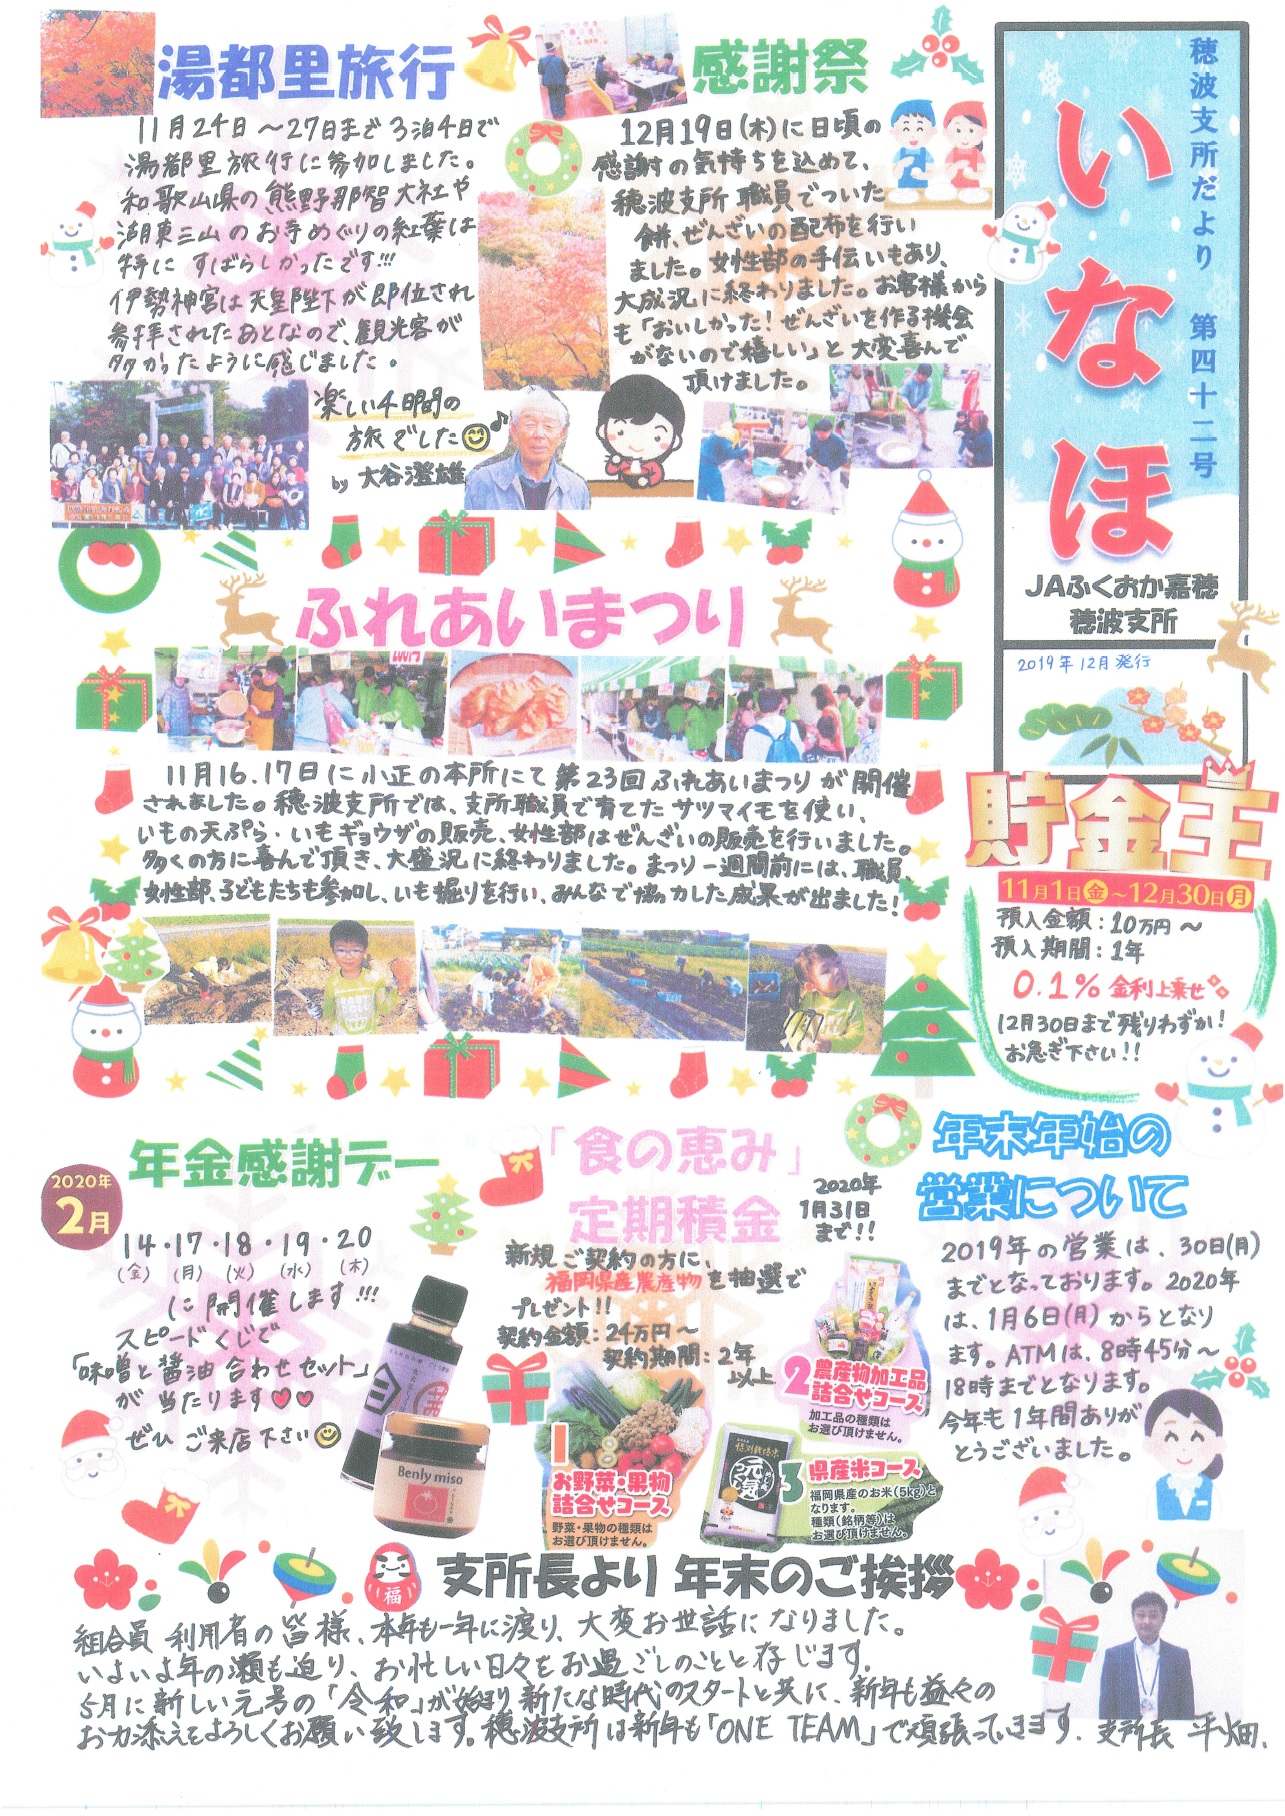 穂波支所だより　第四十二号
いなほ
JAふくおか嘉穂
穂波支所
2019年12月発行
湯都里旅行
11月24日～27日まで3泊4日で
湯都里旅行に参加しました。
和歌山県の熊野那智大社や
湖東三山のお寺めぐりの紅葉は
特に すばらしかったです!!!
伊勢神宮は天皇陛下が即位され
参拝されたあとなので、観光客が
多かったように感じました。
楽しい4日間の
旅でした
by 大谷澄雄
感謝祭
12月19日(木)に日頃の
感謝の気持ちを込めて、
穂波支所職員でついた
餅、ぜんざいの配布を行い
ました。女性部の手伝いもあり、
大成況に終わりました。お客様から
も「おいしかった！ぜんざいを作る機会
がないので嬉しい」と大変喜んで
頂けました。
ふれあいまつり
11月16.17日に小正の本所にて第23回ふれあいまつりが開催
されました。穂波支所では、支所職員で育てたサツマイモを使い、
いもの天ぷら・いもギョウザの販売、女性部はぜんざいの販売を行いました。
多くの方に喜んで頂き、大盛況に終わりました。まつり一週間前には、職員、
女性部、子どもたちも参加し、いも掘りを行い、みんなで協力した成果が出ました!
貯金王
11月1日金～12月30日月
預入金額：10万円～
預入期間：1年
0.1% 金利上乗せ
12月30日まで残りわずか!
お急ぎ下さい!!
2020年
2月
年金感謝デー
14・17・18・19・20
(金) (月) (火) (水) (木)
に開催します!!!
スピードくじで
「味噌と醤油合わせセット」
が当たります♥♥
ぜひご来店下さい
Benly miso
「食の恵み」
定期積金
2020年
1月31日
まで!!
新規ご契約の方に、
福岡県産農産物を抽選で
プレゼント!!
契約金額：24万円～
契約期間：2年
以上
1
お野菜・果物
詰合せコース
野菜・果物の種類は
お選び頂けません。
2 農産物加工品
詰合せコース
加工品の種類は
お選び頂けません。
元気つくし
3 県産米コース
福岡県産のお米(5kg)と
なります。
種類(銘柄等)は
お選び頂けません。
年末年始の
営業について
2019年の営業は、30日(月)
までとなっております。2020年
は、1月6日(月)からとなり
ます。ATMは、8時45分～
18時までとなります。
今年も1年間ありが
とうございました。
福
支所長より 年末のご挨拶
組合員 利用者の皆様、本年も一年に渡り、大変お世話になりました。
いよいよ年の瀬も迫り、お忙しい日々をお過ごしのことと存じます。
5月に新しい元号の「令和」が始まり新たな時代のスタートと共に、新年も益々の
お力添えをよろしくお願い致します。穂波支所は新年も「ONE TEAM」で頑張っていきます. 支所長 平畑.